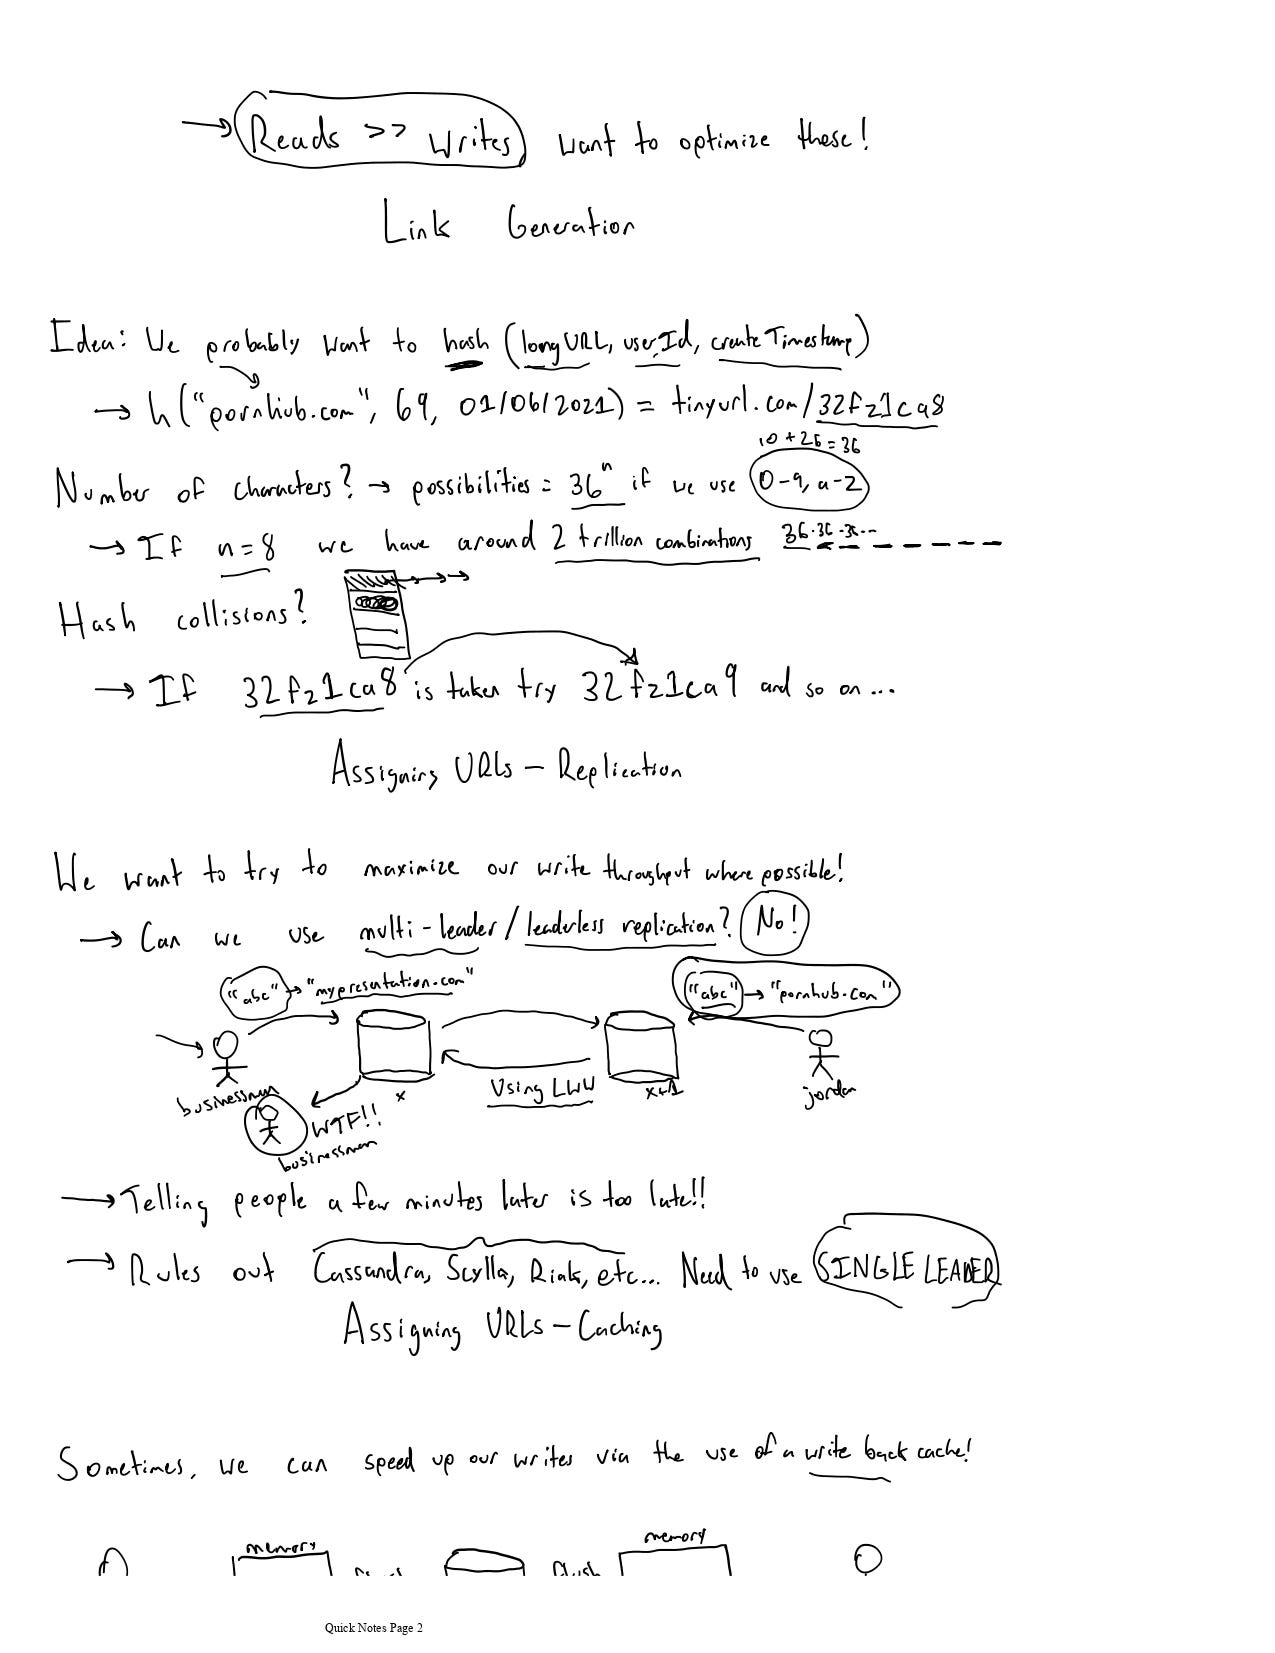 → Reads >> Writes want to optimize these!
Link Generation
Idea: We probably want to hash (longURL, userId, createTimestamp)
→ h("pornhub.com", 69, 01/06/2021) = tinyurl.com/32fz1ca8
10 + 26 = 36
Number of characters? → possibilities = 36ⁿ if we use 0-9, a-z
→ If n=8 we have around 2 trillion combinations 36·36·36...
Hash collisions?
→ If 32fz1ca8 is taken try 32fz1ca9 and so on...
Assigning URLs - Replication
We want to try to maximize our write throughput where possible!
→ Can we use multi-leader/leaderless replication? No!
"abc" → "mypresentation.com"
"abc" → "pornhub.com"
businessman
x
Using LWW
x+1
jordan
WTF!!
businessman
→ Telling people a few minutes later is too late!!
→ Rules out Cassandra, Scylla, Riak, etc... Need to use SINGLE LEADER
Assigning URLs - Caching
Sometimes, we can speed up our writes via the use of a write back cache!
memory
memory
Quick Notes Page 2